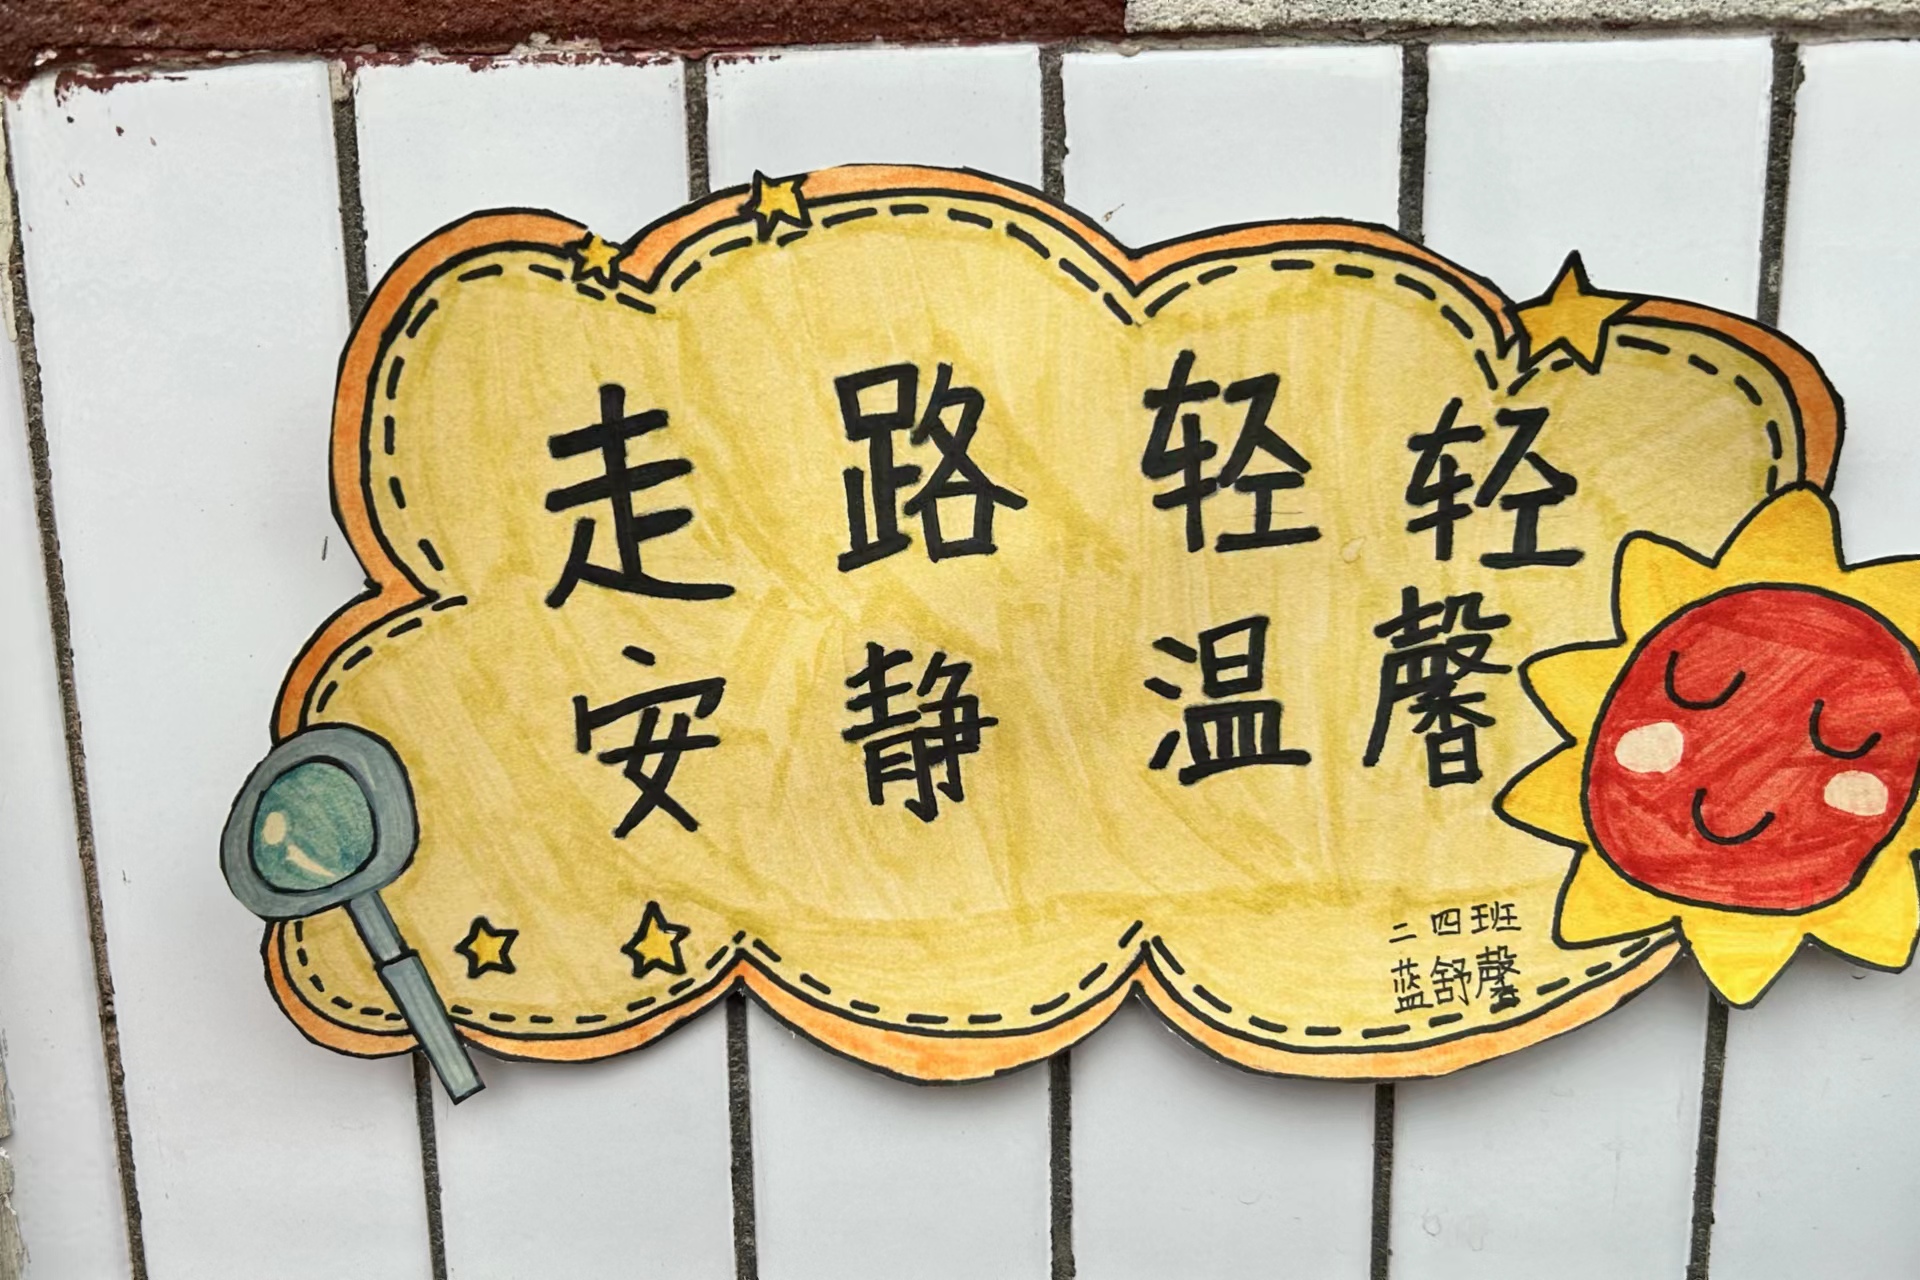 走路轻轻
安静温馨
二四班
蓝舒馨